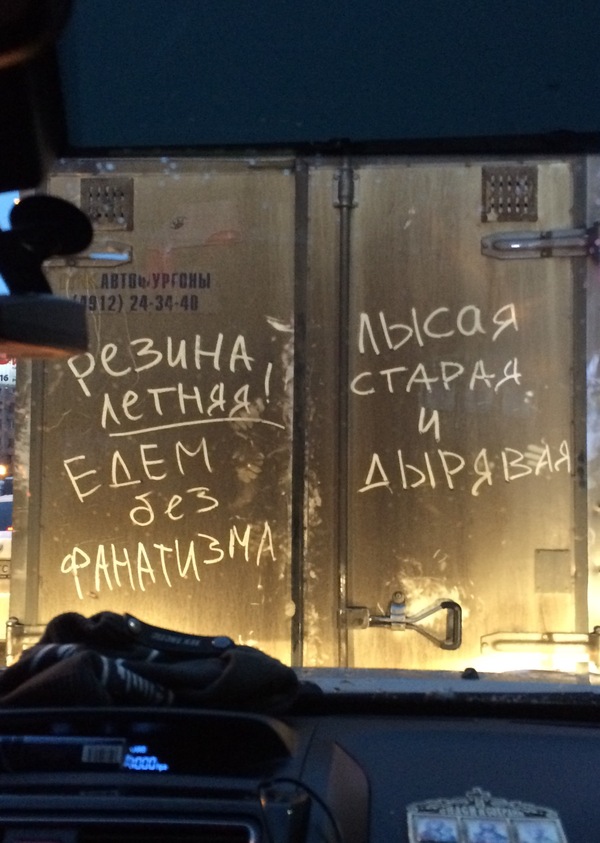 АВТОФУРГОНЫ
(4912) 24-34-40
РЕЗИНА
ЛЕТНЯЯ!
ЕДЕМ
без
ФАНАТИЗМА
ЛЫСАЯ
СТАРАЯ
И
ДЫРЯВАЯ